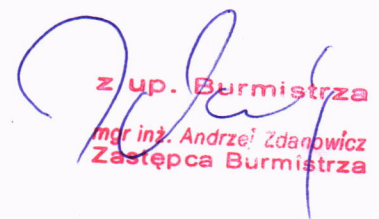 z up. Burmistrza
mgr inż. Andrzej Zdanowicz
Zastępca Burmistrza